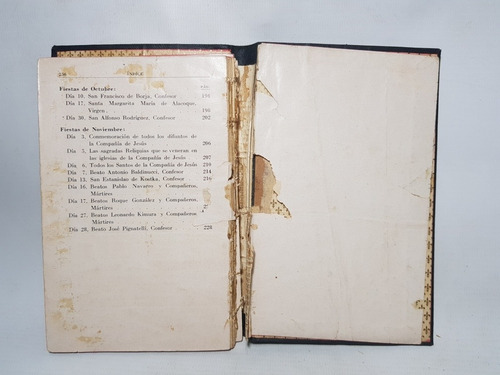 ÍNDICE
Fiestas de Octubre:
Día 10. San Francisco de Borja, Confesor
Día 17. Santa Margarita María de Alacoque,
Virgen
Día 30. San Alfonso Rodríguez, Confesor 202
Fiestas de Noviembre:
Día 3. Conmemoración de todos los difuntos
de la Compañía de Jesús 206
Día 5. Las sagradas Reliquias que se veneran en
las iglesias de la Compañía de Jesús 207
Día 6. Todos los Santos de la Compañía de Jesús 210
Día 7. Beato Antonio Baldinucci, Confesor 214
Día 13. San Estanislao de Kostka, Confesor 216
Día 16. Beatos Pablo Navarro y Compañeros,
Mártires
Día 17. Beatos Roque González y Compañeros,
Mártires
Día 27. Beatos Leonardo Kimura y Compañeros
Mártires
Día 28. Beato José Pignatelli, Confesor 228